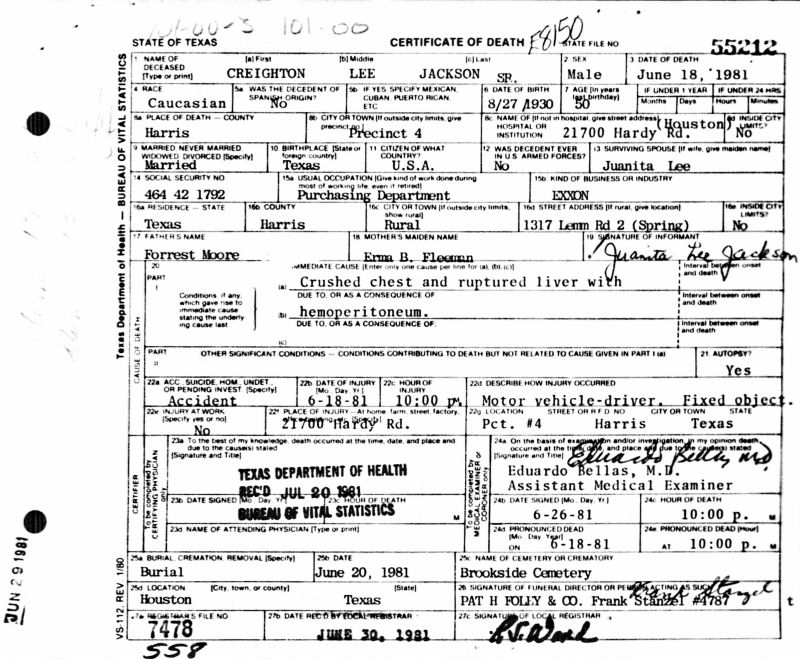 101-00-3 101-00
STATE OF TEXAS CERTIFICATE OF DEATH E8150 STATE FILE NO 55212
1 NAME OF DECEASED [Type or print] [a] First [b] Middle [c] Last 2 SEX 3 DATE OF DEATH
CREIGHTON LEE JACKSON SR. Male June 18, 1981
4 RACE 5a WAS THE DECEDENT OF SPANISH ORIGIN? 5b IF YES, SPECIFY MEXICAN, CUBAN, PUERTO RICAN, ETC 6 DATE OF BIRTH 7 AGE [In years last birthday] IF UNDER 1 YEAR IF UNDER 24 HRS
Months Days Hours Minutes
Caucasian No 8/27/1930 50
8a PLACE OF DEATH — COUNTY 8b CITY OR TOWN [If outside city limits, give precinct no] 8c NAME OF [If not in hospital, give street address] HOSPITAL OR INSTITUTION 8d INSIDE CITY LIMITS?
Harris Precinct 4 21700 Hardy Rd. (Houston) No
9 MARRIED NEVER MARRIED WIDOWED DIVORCED [Specify] 10 BIRTHPLACE [State or foreign country] 11 CITIZEN OF WHAT COUNTRY? 12 WAS DECEDENT EVER IN U.S. ARMED FORCES? 13 SURVIVING SPOUSE [If wife, give maiden name]
Married Texas U.S.A. No Juanita Lee
14 SOCIAL SECURITY NO 15a USUAL OCCUPATION [Give kind of work done during most of working life, even if retired] 15b KIND OF BUSINESS OR INDUSTRY
464 42 1792 Purchasing Department EXXON
16a RESIDENCE — STATE 16b COUNTY 16c CITY OR TOWN [If outside city limits, show rural] 16d STREET ADDRESS [If rural, give location] 16e INSIDE CITY LIMITS?
Texas Harris Rural 1317 Lemm Rd 2 (Spring) No
17 FATHER'S NAME 18 MOTHER'S MAIDEN NAME 19 SIGNATURE OF INFORMANT
Forrest Moore Erma B. Fleeman Juanita Lee Jackson
20 PART I IMMEDIATE CAUSE [Enter only one cause per line for (a), (b), (c)] Interval between onset and death
(a) Crushed chest and ruptured liver with
Conditions, if any, which gave rise to immediate cause stating the underlying cause last
DUE TO, OR AS A CONSEQUENCE OF Interval between onset and death
(b) hemoperitoneum.
DUE TO, OR AS A CONSEQUENCE OF: Interval between onset and death
(c)
PART II OTHER SIGNIFICANT CONDITIONS — CONDITIONS CONTRIBUTING TO DEATH BUT NOT RELATED TO CAUSE GIVEN IN PART I (a) 21. AUTOPSY?
Yes
22a ACC, SUICIDE, HOM, UNDET, OR PENDING INVEST [Specify] 22b DATE OF INJURY [Mo. Day, Yr] 22c HOUR OF INJURY 22d DESCRIBE HOW INJURY OCCURRED
Accident 6-18-81 10:00 p.M Motor vehicle-driver. Fixed object.
22e INJURY AT WORK [Specify yes or no] 22f PLACE OF INJURY—At home, farm, street, factory, office building, etc [Specify] 22g LOCATION STREET OR R F D NO CITY OR TOWN STATE
No 21700 Hardy Rd. Pct. #4 Harris Texas
23a To the best of my knowledge, death occurred at the time, date, and place and due to the cause(s) stated [Signature and Title]
24a On the basis of examination and/or investigation, in my opinion death occurred at the time, date, and place and due to the cause(s) stated [Signature and Title]
Eduardo Bellas MD
Eduardo Bellas, M.D.
Assistant Medical Examiner
TEXAS DEPARTMENT OF HEALTH
REC'D JUL 20 1981
BUREAU OF VITAL STATISTICS
23b DATE SIGNED [Mo. Day, Yr] 23c HOUR OF DEATH M 24b DATE SIGNED [Mo. Day, Yr] 24c HOUR OF DEATH
6-26-81 10:00 p. M
23d NAME OF ATTENDING PHYSICIAN [Type or print] 24d PRONOUNCED DEAD [Mo. Day, Year] 24e PRONOUNCED DEAD [Hour]
ON 6-18-81 AT 10:00 p. M
25a BURIAL, CREMATION, REMOVAL [Specify] 25b DATE 25c NAME OF CEMETERY OR CREMATORY
Burial June 20, 1981 Brookside Cemetery
25d LOCATION [City, town, or county] [State] 26 SIGNATURE OF FUNERAL DIRECTOR OR PERSON ACTING AS SUCH
Houston Texas PAT H FOLEY & CO. Frank Stanzel #4787 Frank Stanzel t
27a REGISTRAR'S FILE NO 27b DATE REC'D BY LOCAL REGISTRAR 27c SIGNATURE OF LOCAL REGISTRAR
7478 JUNE 30, 1981
558
Texas Department of Health — BUREAU OF VITAL STATISTICS
CAUSE OF DEATH
CERTIFIER
To be completed by CERTIFYING PHYSICIAN
To be completed by MEDICAL EXAMINER or CORONER ONLY
VS-112, REV. 1/80
JUN 29 1981